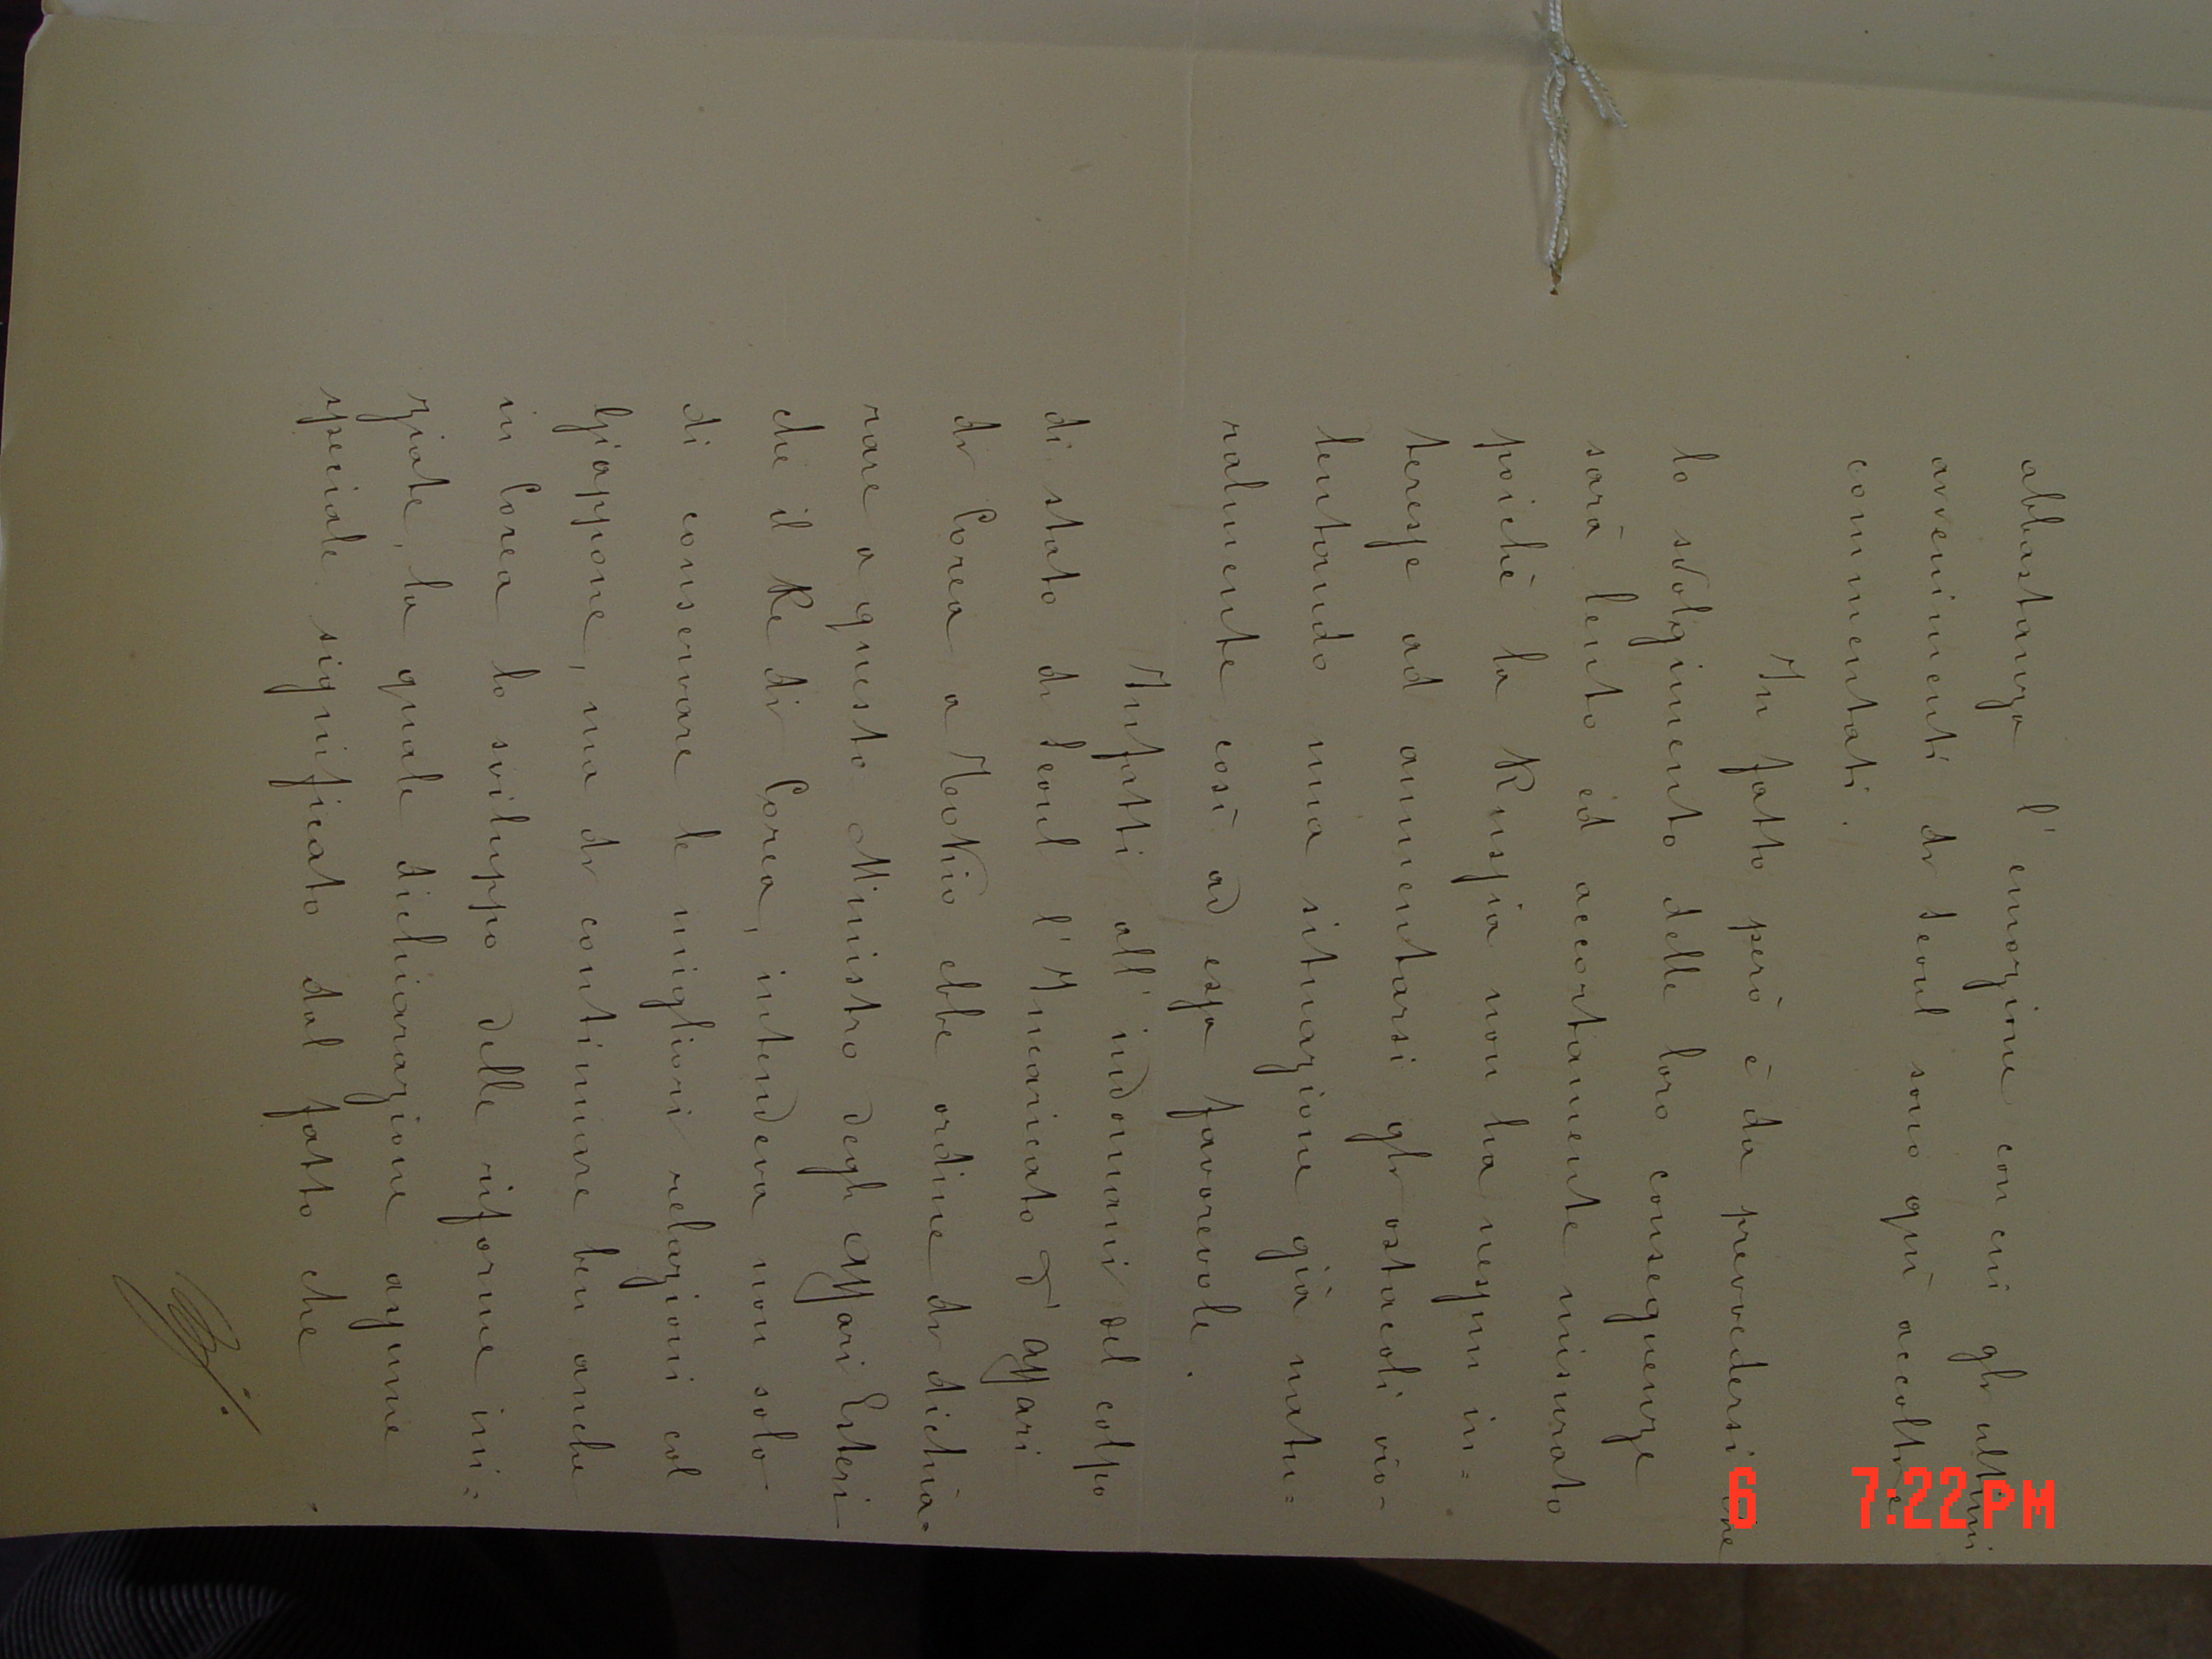 abbastanza l'emozione con cui gli ultimi
avvenimenti di Seoul sono quì accolti e
commentati.
In fatto però è da prevvedersi che
lo svolgimento delle loro conseguenze
sarà lento ed accortamente misurato
poichè la Russia non ha nessun in=
teresse ad aumentarsi gli ostacoli vio-
lentando una situazione già natu=
ralmente così ad essa favorevole.
Infatti all'indomani del colpo
di stato di Seoul l'Incaricato d'Affari
di Corea a Tokio ebbe ordine di dichia=
rare a questo Ministro degli Affari Esteri
che il Re di Corea, intendeva non solo
di conservare le migliori relazioni col
Giappone, ma di continuare ben anche
in Corea lo sviluppo delle riforme ini=
ziate, la quale dichiarazione assume
speciale significato dal fatto che
6 7:22PM